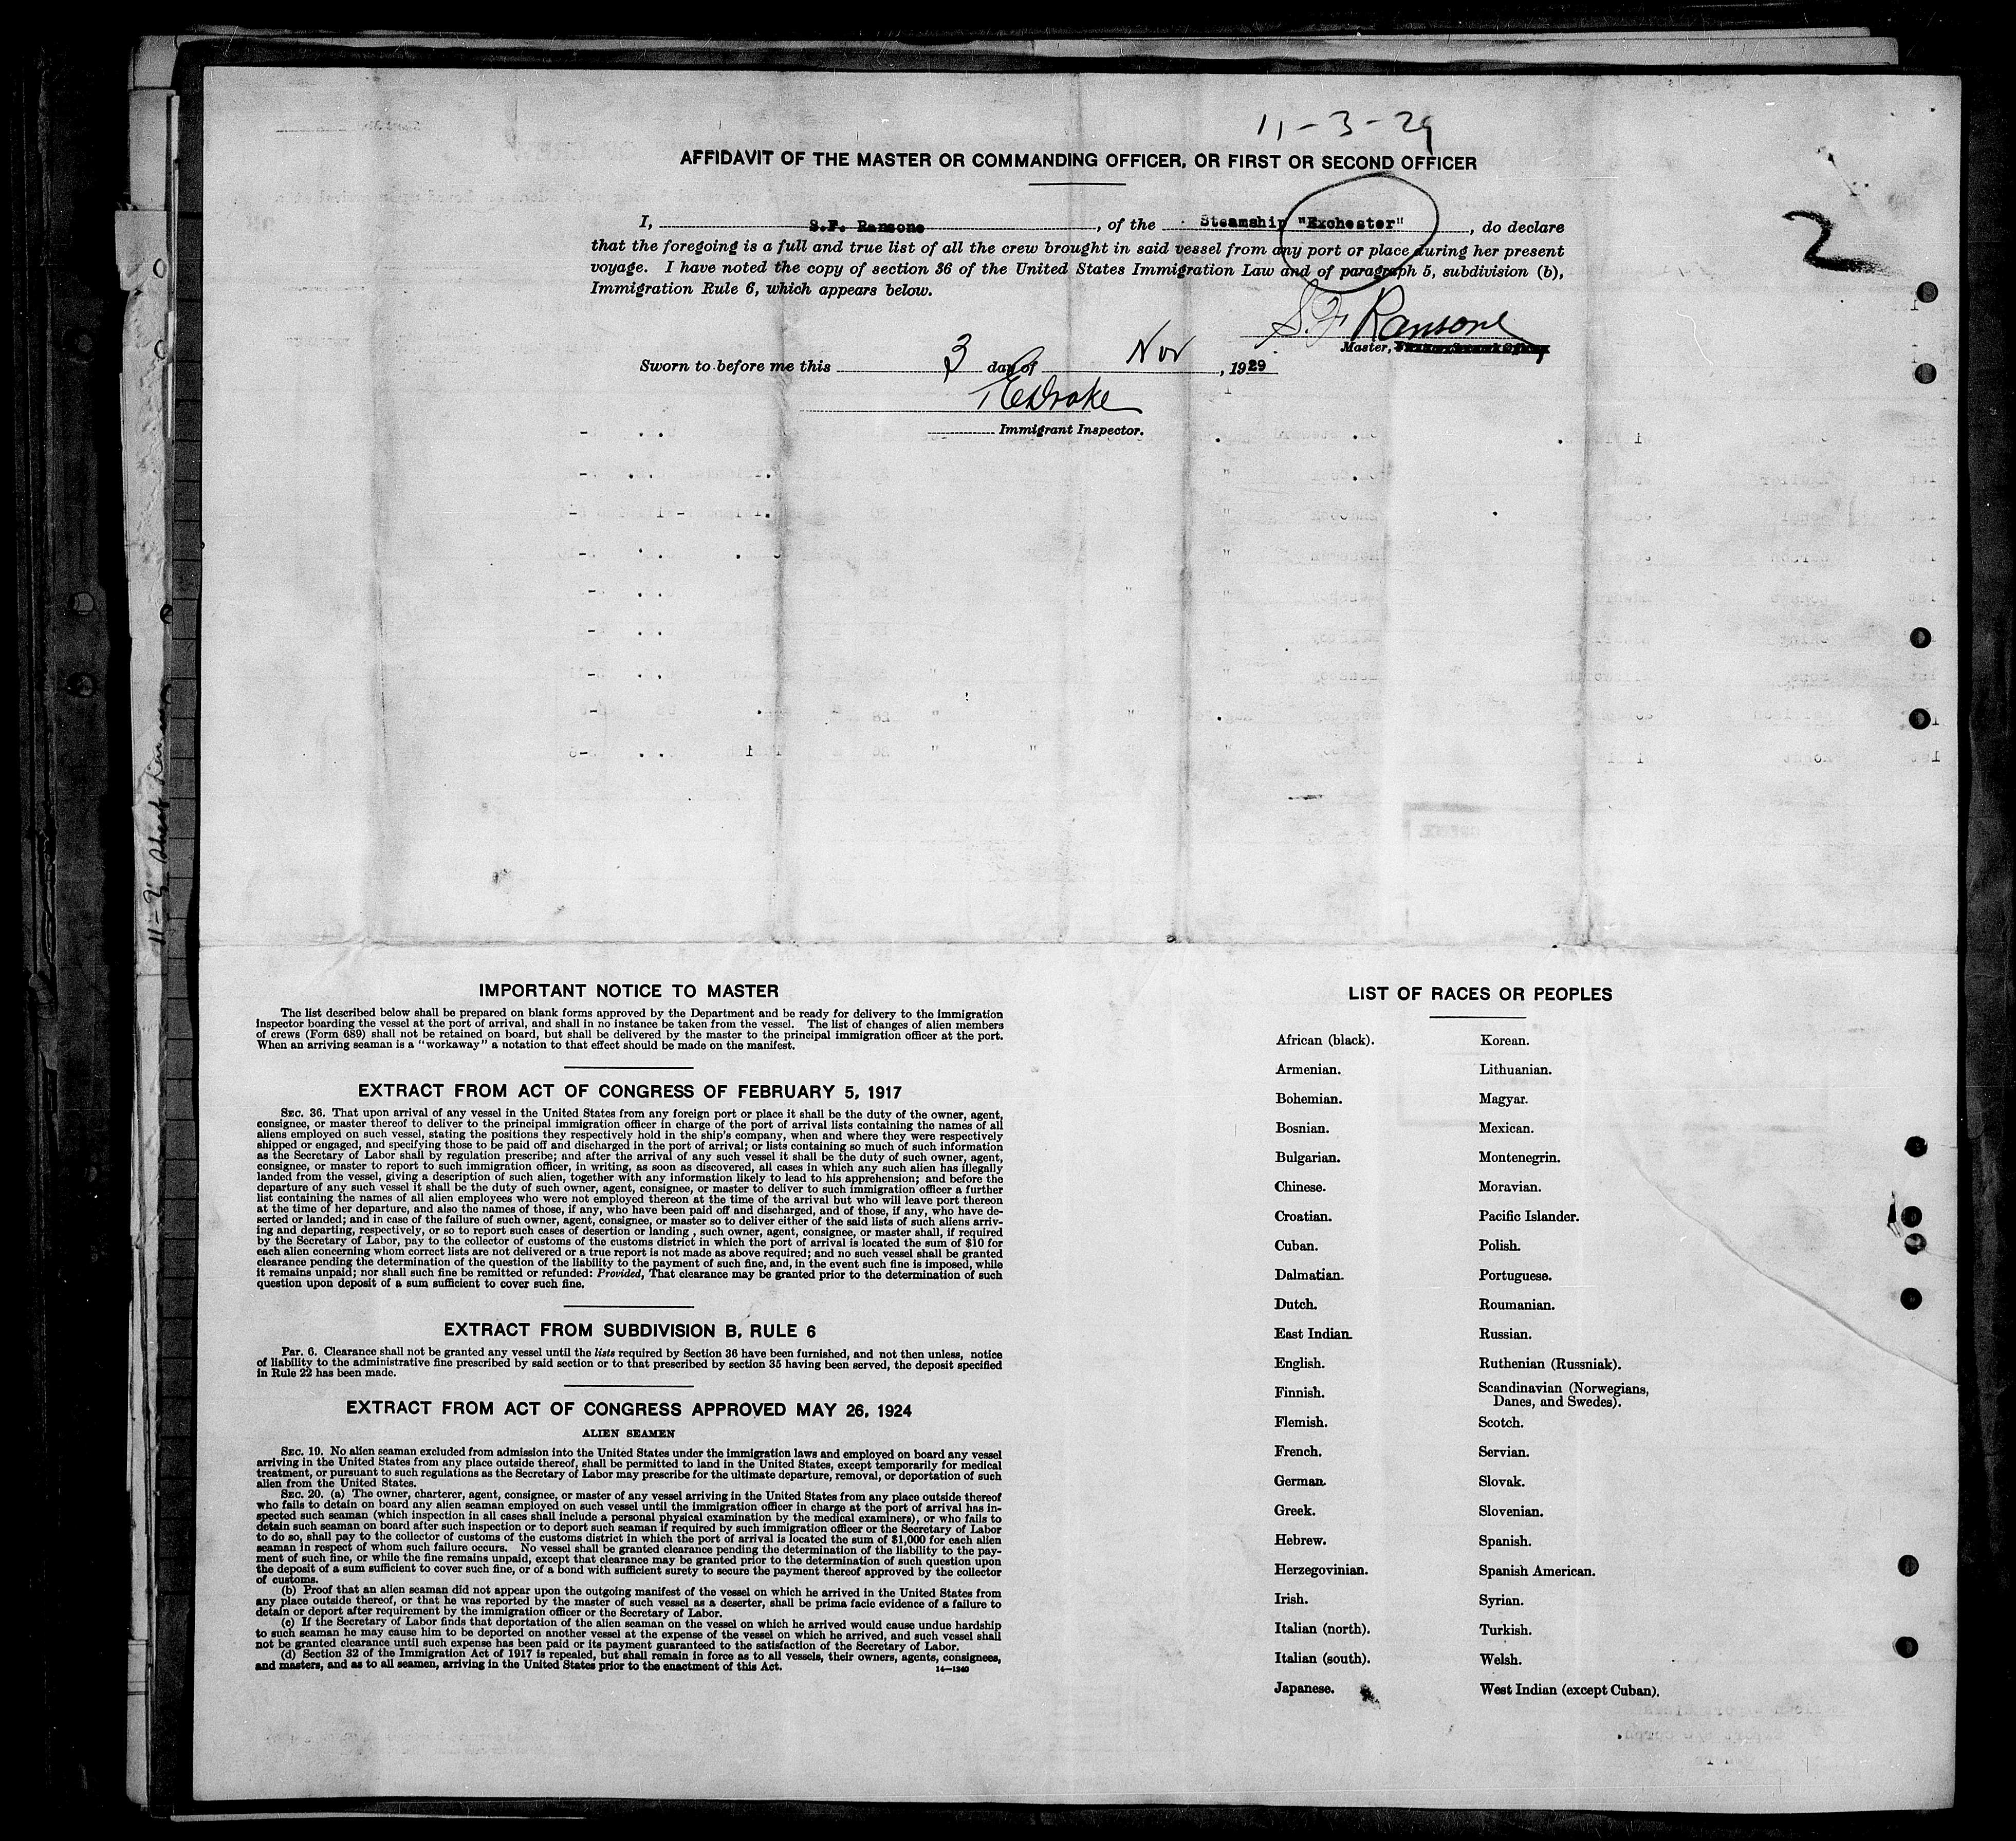 11-3-29
AFFIDAVIT OF THE MASTER OR COMMANDING OFFICER, OR FIRST OR SECOND OFFICER
2
I, S.F. Ransone, of the Steamship "Exchester", do declare
that the foregoing is a full and true list of all the crew brought in said vessel from any port or place during her present
voyage. I have noted the copy of section 36 of the United States Immigration Law and of paragraph 5, subdivision (b),
Immigration Rule 6, which appears below.
S. F. Ransone
Master,
Sworn to before me this 3 day of Nov, 1929
Drake
Immigrant Inspector.
IMPORTANT NOTICE TO MASTER
The list described below shall be prepared on blank forms approved by the Department and be ready for delivery to the immigration
inspector boarding the vessel at the port of arrival, and shall in no instance be taken from the vessel. The list of changes of alien members
of crews (Form 689) shall not be retained on board, but shall be delivered by the master to the principal immigration officer at the port.
When an arriving seaman is a "workaway" a notation to that effect should be made on the manifest.
EXTRACT FROM ACT OF CONGRESS OF FEBRUARY 5, 1917
SEC. 36. That upon arrival of any vessel in the United States from any foreign port or place it shall be the duty of the owner, agent,
consignee, or master thereof to deliver to the principal immigration officer in charge of the port of arrival lists containing the names of all
aliens employed on such vessel, stating the positions they respectively hold in the ship's company, when and where they were respectively
shipped or engaged, and specifying those to be paid off and discharged in the port of arrival; or lists containing so much of such information
as the Secretary of Labor shall by regulation prescribe; and after the arrival of any such vessel it shall be the duty of such owner, agent,
consignee, or master to report to such immigration officer, in writing, as soon as discovered, all cases in which any such alien has illegally
landed from the vessel, giving a description of such alien, together with any information likely to lead to his apprehension; and before the
departure of any such vessel it shall be the duty of such owner, agent, consignee, or master to deliver to such immigration officer a further
list containing the names of all alien employees who were not employed thereon at the time of the arrival but who will leave port thereon
at the time of her departure, and also the names of those, if any, who have been paid off and discharged, and of those, if any, who have de-
serted or landed; and in case of the failure of such owner, agent, consignee, or master so to deliver either of the said lists of such aliens arriv-
ing and departing, respectively, or so to report such cases of desertion or landing , such owner, agent, consignee, or master shall, if required
by the Secretary of Labor, pay to the collector of customs of the customs district in which the port of arrival is located the sum of $10 for
each alien concerning whom correct lists are not delivered or a true report is not made as above required; and no such vessel shall be granted
clearance pending the determination of the question of the liability to the payment of such fine, and, in the event such fine is imposed, while
it remains unpaid; nor shall such fine be remitted or refunded: Provided, That clearance may be granted prior to the determination of such
question upon deposit of a sum sufficient to cover such fine.
EXTRACT FROM SUBDIVISION B, RULE 6
Par. 6. Clearance shall not be granted any vessel until the lists required by Section 36 have been furnished, and not then unless, notice
of liability to the administrative fine prescribed by said section or to that prescribed by section 35 having been served, the deposit specified
in Rule 22 has been made.
EXTRACT FROM ACT OF CONGRESS APPROVED MAY 26, 1924
ALIEN SEAMEN
SEC. 19. No alien seaman excluded from admission into the United States under the immigration laws and employed on board any vessel
arriving in the United States from any place outside thereof, shall be permitted to land in the United States, except temporarily for medical
treatment, or pursuant to such regulations as the Secretary of Labor may prescribe for the ultimate departure, removal, or deportation of such
alien from the United States.
SEC. 20. (a) The owner, charterer, agent, consignee, or master of any vessel arriving in the United States from any place outside thereof
who fails to detain on board any alien seaman employed on such vessel until the immigration officer in charge at the port of arrival has in-
spected such seaman (which inspection in all cases shall include a personal physical examination by the medical examiners), or who fails to
detain such seaman on board after such inspection or to deport such seaman if required by such immigration officer or the Secretary of Labor
to do so, shall pay to the collector of customs of the customs district in which the port of arrival is located the sum of $1,000 for each alien
seaman in respect of whom such failure occurs. No vessel shall be granted clearance pending the determination of the liability to the pay-
ment of such fine, or while the fine remains unpaid, except that clearance may be granted prior to the determination of such question upon
the deposit of a sum sufficient to cover such fine, or of a bond with sufficient surety to secure the payment thereof approved by the collector
of customs.
(b) Proof that an alien seaman did not appear upon the outgoing manifest of the vessel on which he arrived in the United States from
any place outside thereof, or that he was reported by the master of such vessel as a deserter, shall be prima facie evidence of a failure to
detain or deport after requirement by the immigration officer or the Secretary of Labor.
(c) If the Secretary of Labor finds that deportation of the alien seaman on the vessel on which he arrived would cause undue hardship
to such seaman he may cause him to be deported on another vessel at the expense of the vessel on which he arrived, and such vessel shall
not be granted clearance until such expense has been paid or its payment guaranteed to the satisfaction of the Secretary of Labor.
(d) Section 32 of the Immigration Act of 1917 is repealed, but shall remain in force as to all vessels, their owners, agents, consignees,
and masters, and as to all seamen, arriving in the United States prior to the enactment of this Act.
14—1240
LIST OF RACES OR PEOPLES
African (black).
Armenian.
Bohemian.
Bosnian.
Bulgarian.
Chinese.
Croatian.
Cuban.
Dalmatian.
Dutch.
East Indian.
English.
Finnish.
Flemish.
French.
German.
Greek.
Hebrew.
Herzegovinian.
Irish.
Italian (north).
Italian (south).
Japanese.
Korean.
Lithuanian.
Magyar.
Mexican.
Montenegrin.
Moravian.
Pacific Islander.
Polish.
Portuguese.
Roumanian.
Russian.
Ruthenian (Russniak).
Scandinavian (Norwegians,
Danes, and Swedes).
Scotch.
Servian.
Slovak.
Slovenian.
Spanish.
Spanish American.
Syrian.
Turkish.
Welsh.
West Indian (except Cuban).